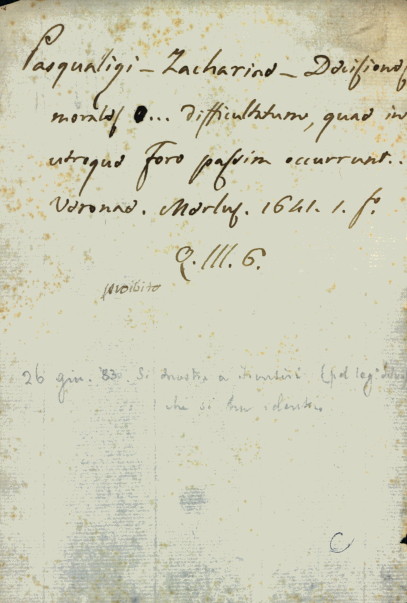 Pasqualigi - Zachariae - Decisiones
morales ... difficultatum, quae in
utroque Foro passim occurrunt..
Veronae. Merlus. 1641. 1. f.°
Q. III. 6.
proibito
26 giu. 83 Si
che si
C